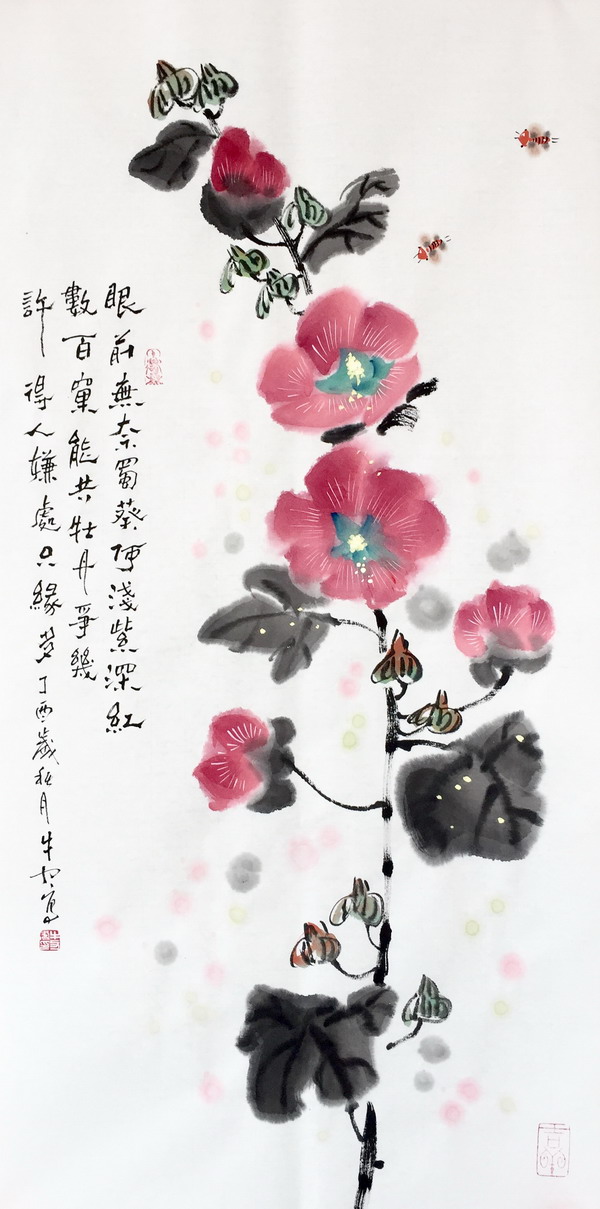 眼前無奈蜀葵何淺紫深紅
數百窠能共牡丹爭幾
許得人嫌處只緣多丁酉歲秋月牛